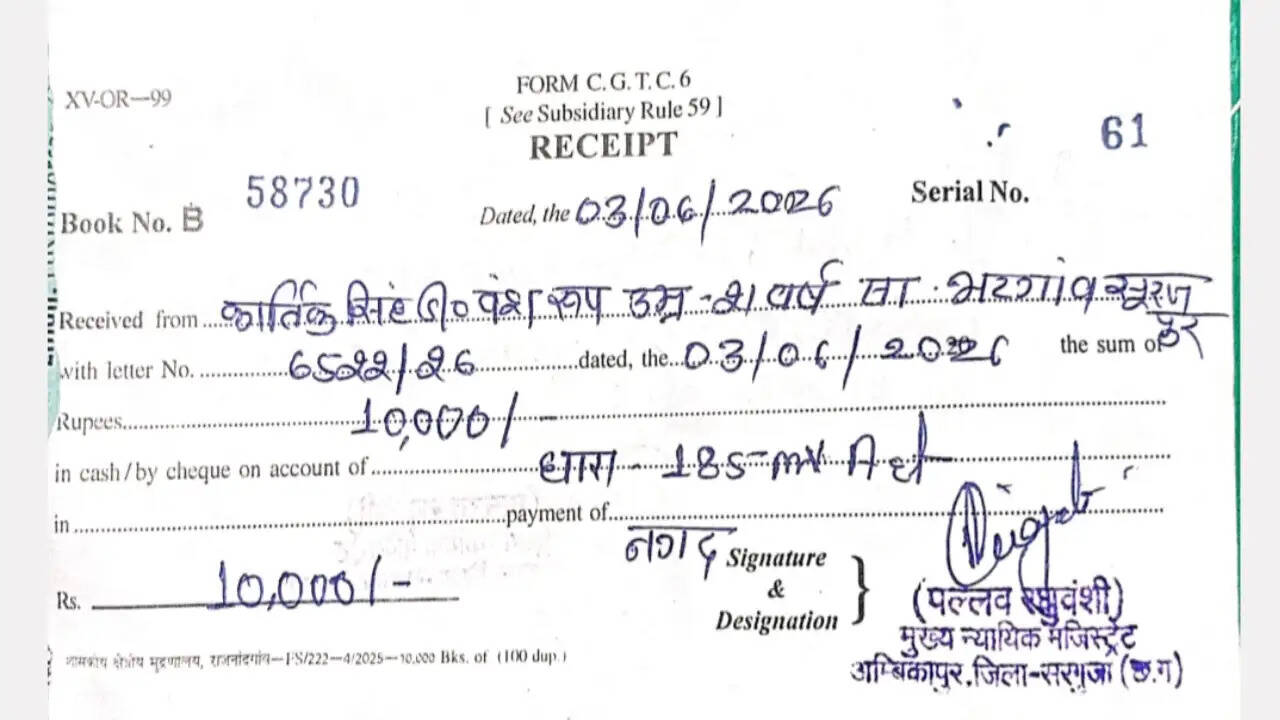 XV-OR—99
FORM C.G.T.C.6
[ See Subsidiary Rule 59 ]
RECEIPT
61
Book No. B 58730
Dated, the 03/06/2026
Serial No.
Received from कार्तिक सिंह वंश रूप उम्र - 21 वर्ष सा. भरगांव सूरजपुर
with letter No. 6522/26 dated, the 03/06/2026 the sum of
Rupees 10,000/-
in cash/by cheque on account of धारा - 185 - mv Act
in payment of
नगद
Rs. 10,000/-
Signature
&
Designation
(पल्लव रघुवंशी)
मुख्य न्यायिक मजिस्ट्रेट
अम्बिकापुर, जिला-सरगुजा (छ.ग)
शासकीय क्षेत्रीय मुद्रणालय, राजनांदगांव—FS/222—4/2025—10,000 Bks. of (100 dup.)